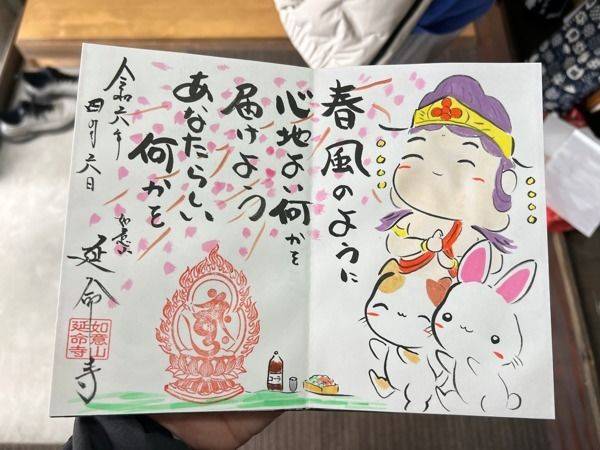 春風のように
心地よい何かを
届けよう
あなたらしい
何かを
令和六年
四月六日
如意山
延命寺
如意山
延命寺
コーラ